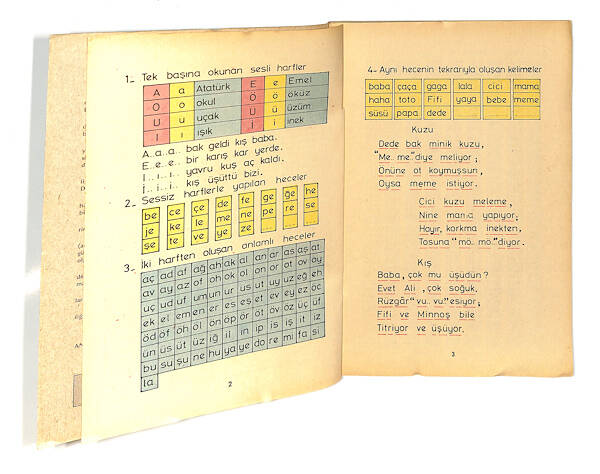 1- Tek başına okunan sesli harfler
A a Atatürk E e Emel
O o okul Ö ö öküz
U u uçak Ü ü üzüm
I ı ışık İ i inek
A..a...a... bak geldi kış baba.
E...e...e... bir karış kar yerde.
I...ı...ı... yavru kuş aç kaldı.
İ...i...i... kış üşüttü bizi.
Sessiz harflerle yapılan heceler
2-
be ce çe de fe ge ğe he
je ke le me ne pe re se
şe te ve ye ze
3- İki harften oluşan anlamlı heceler
aç ad al ağ ah ak al an ar as aş at
av ay az of oh ok ol on or ot ov oy
uç ud uf um un ur us ut uy uz eğ eh
ek el em en er es eş et ev ey ez öc
öd öf öh öl ön öp ör öt öv öz üç üf
ün üs üt üz iğ il in ip is iş it iz
bu su şu ne hu ya ye do re mi fa si
la
2
4- Aynı hecenin tekrarıyla oluşan kelimeler
baba çaça gaga lala cici mama
haha toto Fifi yaya bebe meme
süsü papa dede
Kuzu
Dede bak minik kuzu,
"Me. me." diye meliyor;
Önüne ot koymuşsun,
Oysa meme istiyor.
Cici kuzu meleme,
Nine mama yapıyor;
Hayır, korkma inekten,
Tosuna "mö. mö." diyor.
Kış
Baba, çok mu üşüdün?
Evet Ali, çok soğuk.
Rüzgâr "vu.. vu." esiyor;
Fifi ve Minnoş bile
Titriyor ve üşüyor.
3